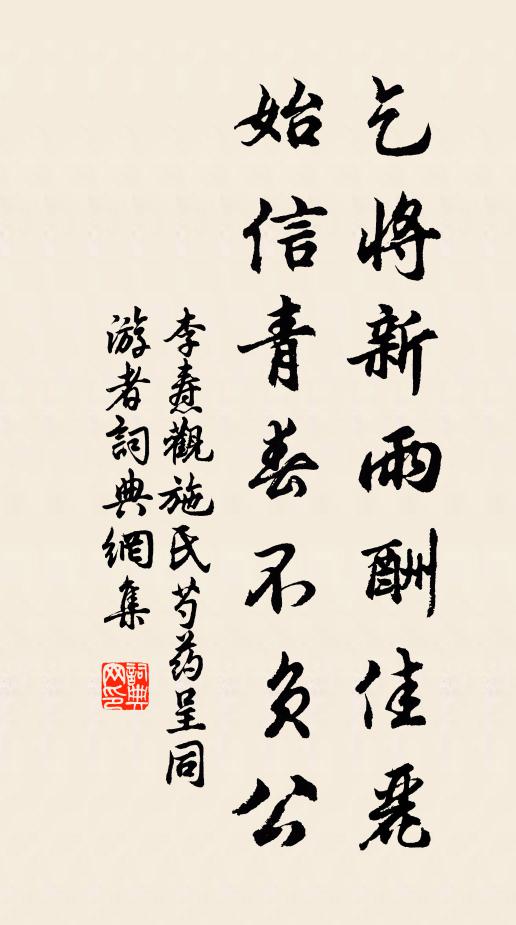 乞將新雨酬佳麗
始信青春不負公
李燾觀施氏芍药呈同
游者詞典網集
詞典網印